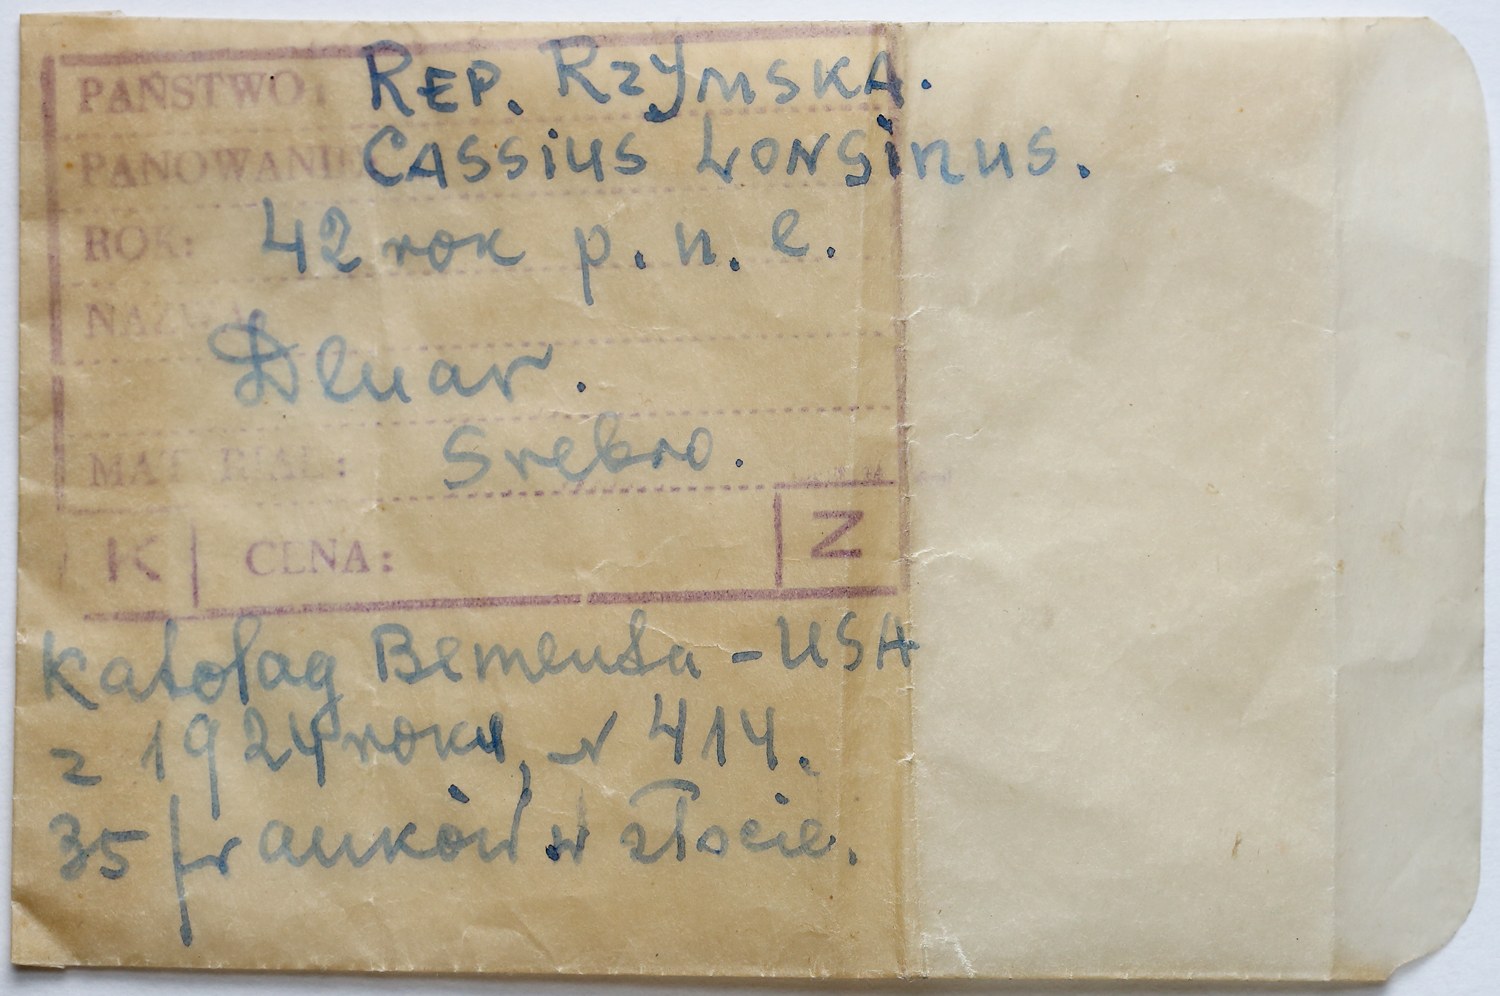 PAŃSTWO: REP. RZYMSKA.
PANOWANIE CASSIUS LONGINUS.
ROK: 42 rok p. n. e.
NAZWA
Denar.
MAT RIAŁ: Srebro.
K CENA: Z
Katolag Bementa - USA
z 1924 roku, nr 414.
35 franków w złocie.